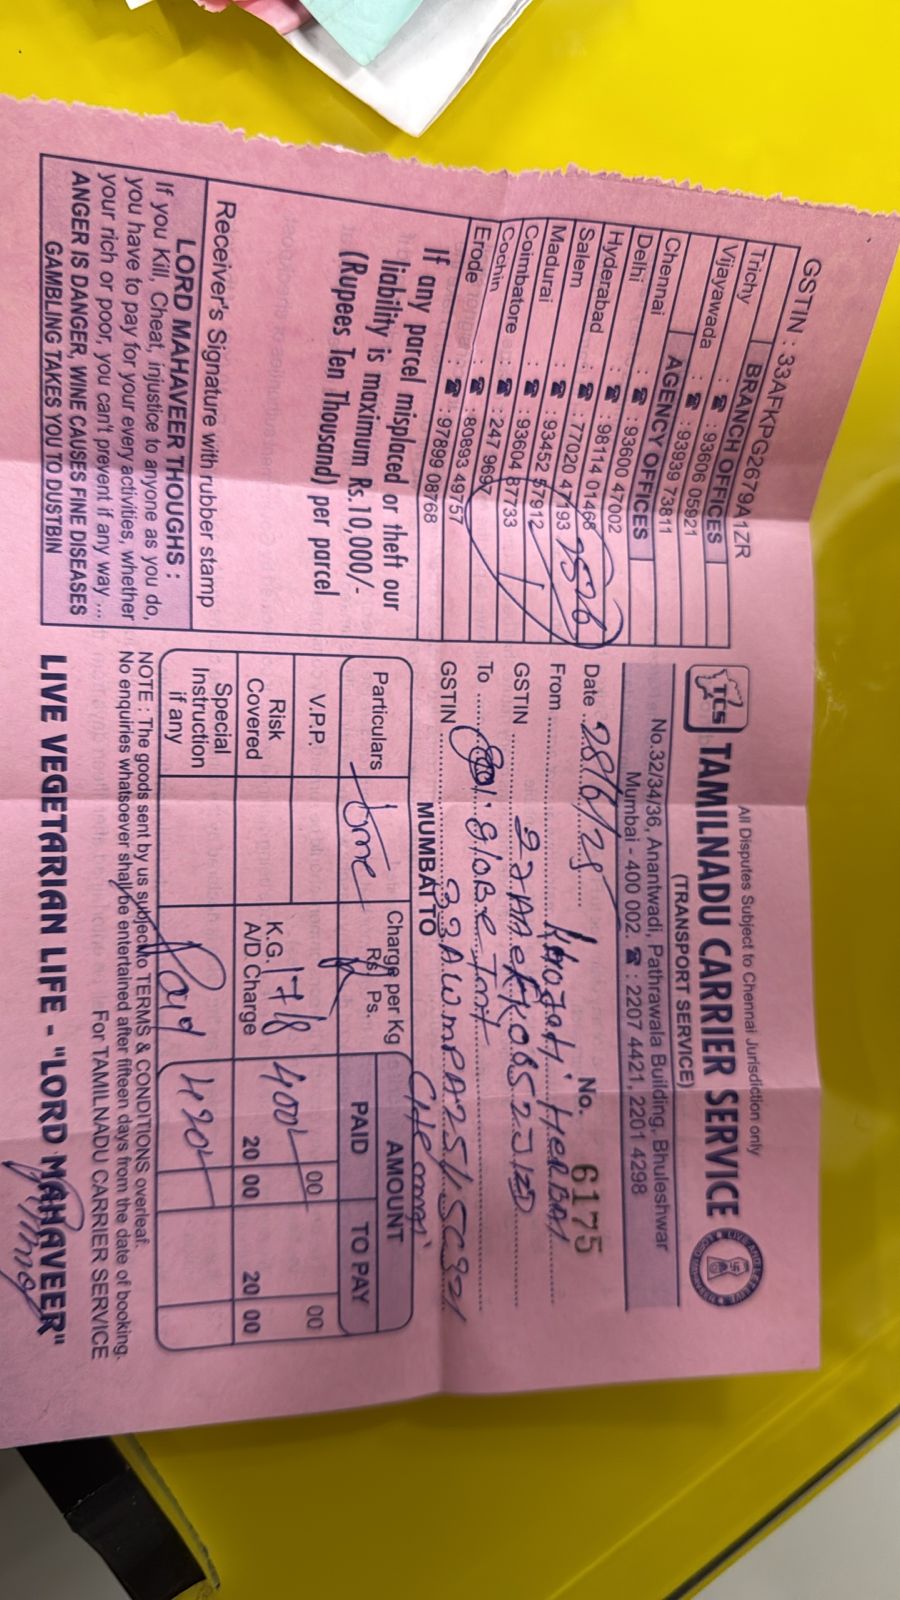 GSTIN : 33AFKPG2679A1ZR
BRANCH OFFICES
Trichy : ☎ : 93606 05921
Vijayawada : ☎ : 93939 73811
AGENCY OFFICES
Chennai : ☎ : 93600 47002
Delhi : ☎ : 98114 01468
Hyderabad : ☎ : 77020 47193
Salem : ☎ : 93452 57912
Madurai : ☎ : 93604 87733
Coimbatore : ☎ : 247 9697
Cochin : ☎ : 80893 49757
Erode : ☎ : 97899 08768
2526
If any parcel misplaced or theft our
liability is maximum Rs.10,000/-
(Rupees Ten Thousand) per parcel
Receiver's Signature with rubber stamp
LORD MAHAVEER THOUGHS :
If you Kill, Cheat, injustice to anyone as you do,
you have to pay for your every activities, whether
your rich or poor, you can't prevent if any way ...
ANGER IS DANGER, WINE CAUSES FINE DISEASES
GAMBLING TAKES YOU TO DUSTBIN
All Disputes Subject to Chennai Jurisdiction only
TCS TAMILNADU CARRIER SERVICE
(TRANSPORT SERVICE)
No.32/34/36, Anantwadi, Pathrawala Building, Bhuleshwar
Mumbai - 400 002. ☎ : 2207 4421, 2201 4298
Date 28/6/25 No. 6175
From HERBAL
GSTIN
To GLOBE
GSTIN
MUMBAI TO Chennai
Particulars Charge per Kg Rs. Ps. AMOUNT
PAID TO PAY
V.P.P. 00 00
Risk Covered K.G. 178 A/D Charge 400 20 00 20 00
Special Instruction if any Paid 420
NOTE : The goods sent by us subject to TERMS & CONDITIONS overleaf.
No enquiries whatsoever shall be entertained after fifteen days from the date of booking.
For TAMILNADU CARRIER SERVICE
LIVE VEGETARIAN LIFE - "LORD MAHAVEER"